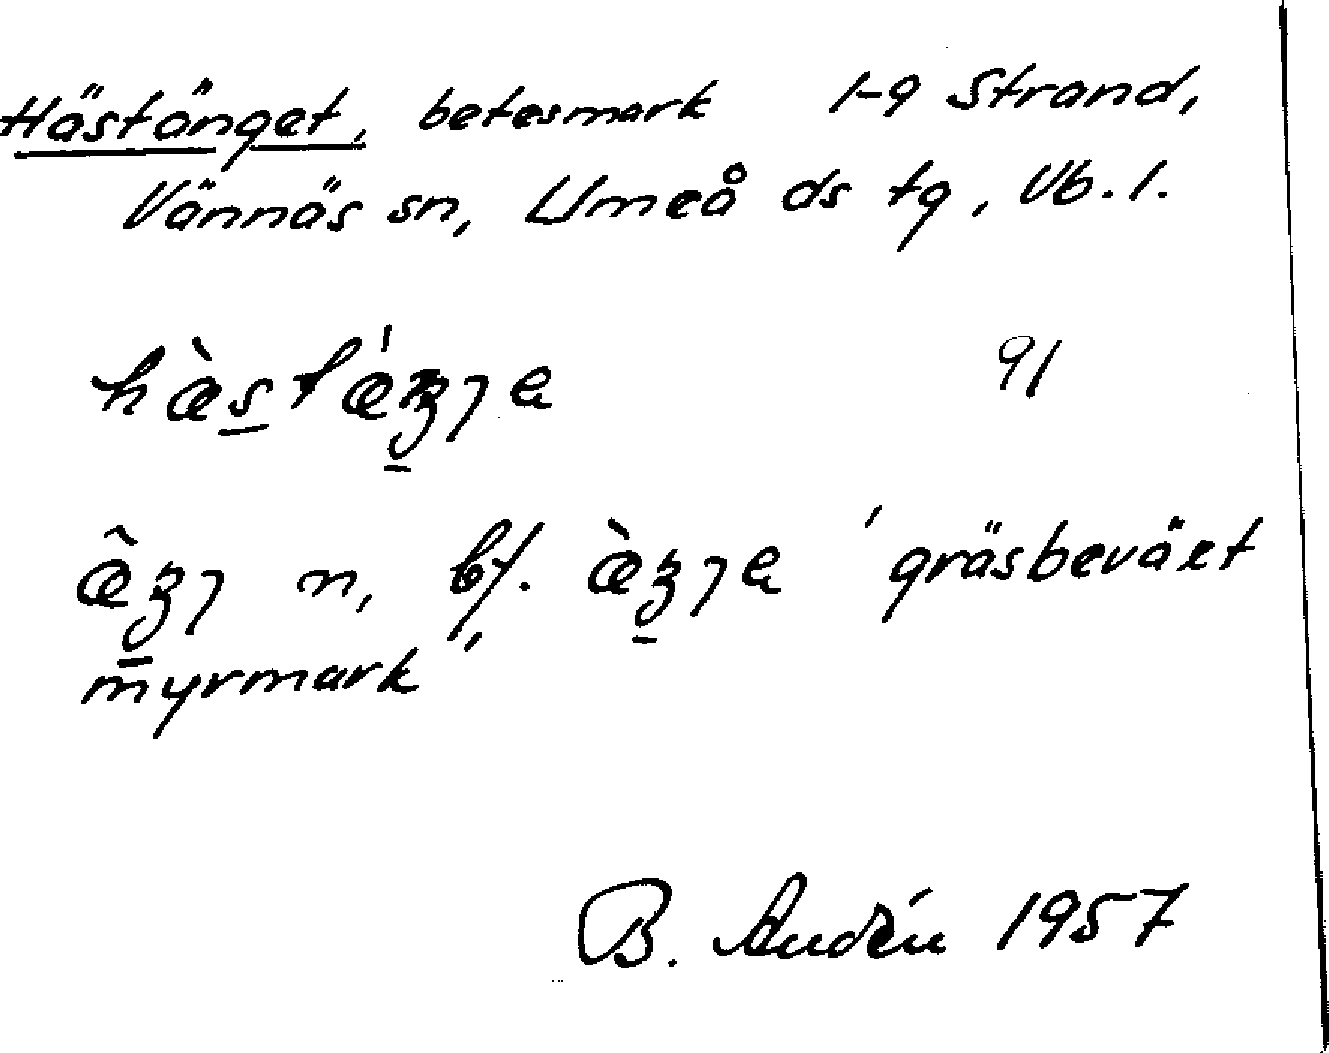 Hästänget, betesmark 1-9 Strand,
Vännäs sn, Umeå ds tg, Vb. l.
91
n, bf. 'gräsbeväxt
myrmark'
B. Audén 1957